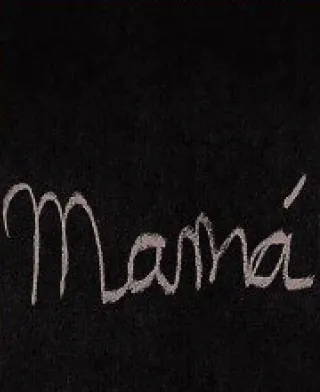 Mamá